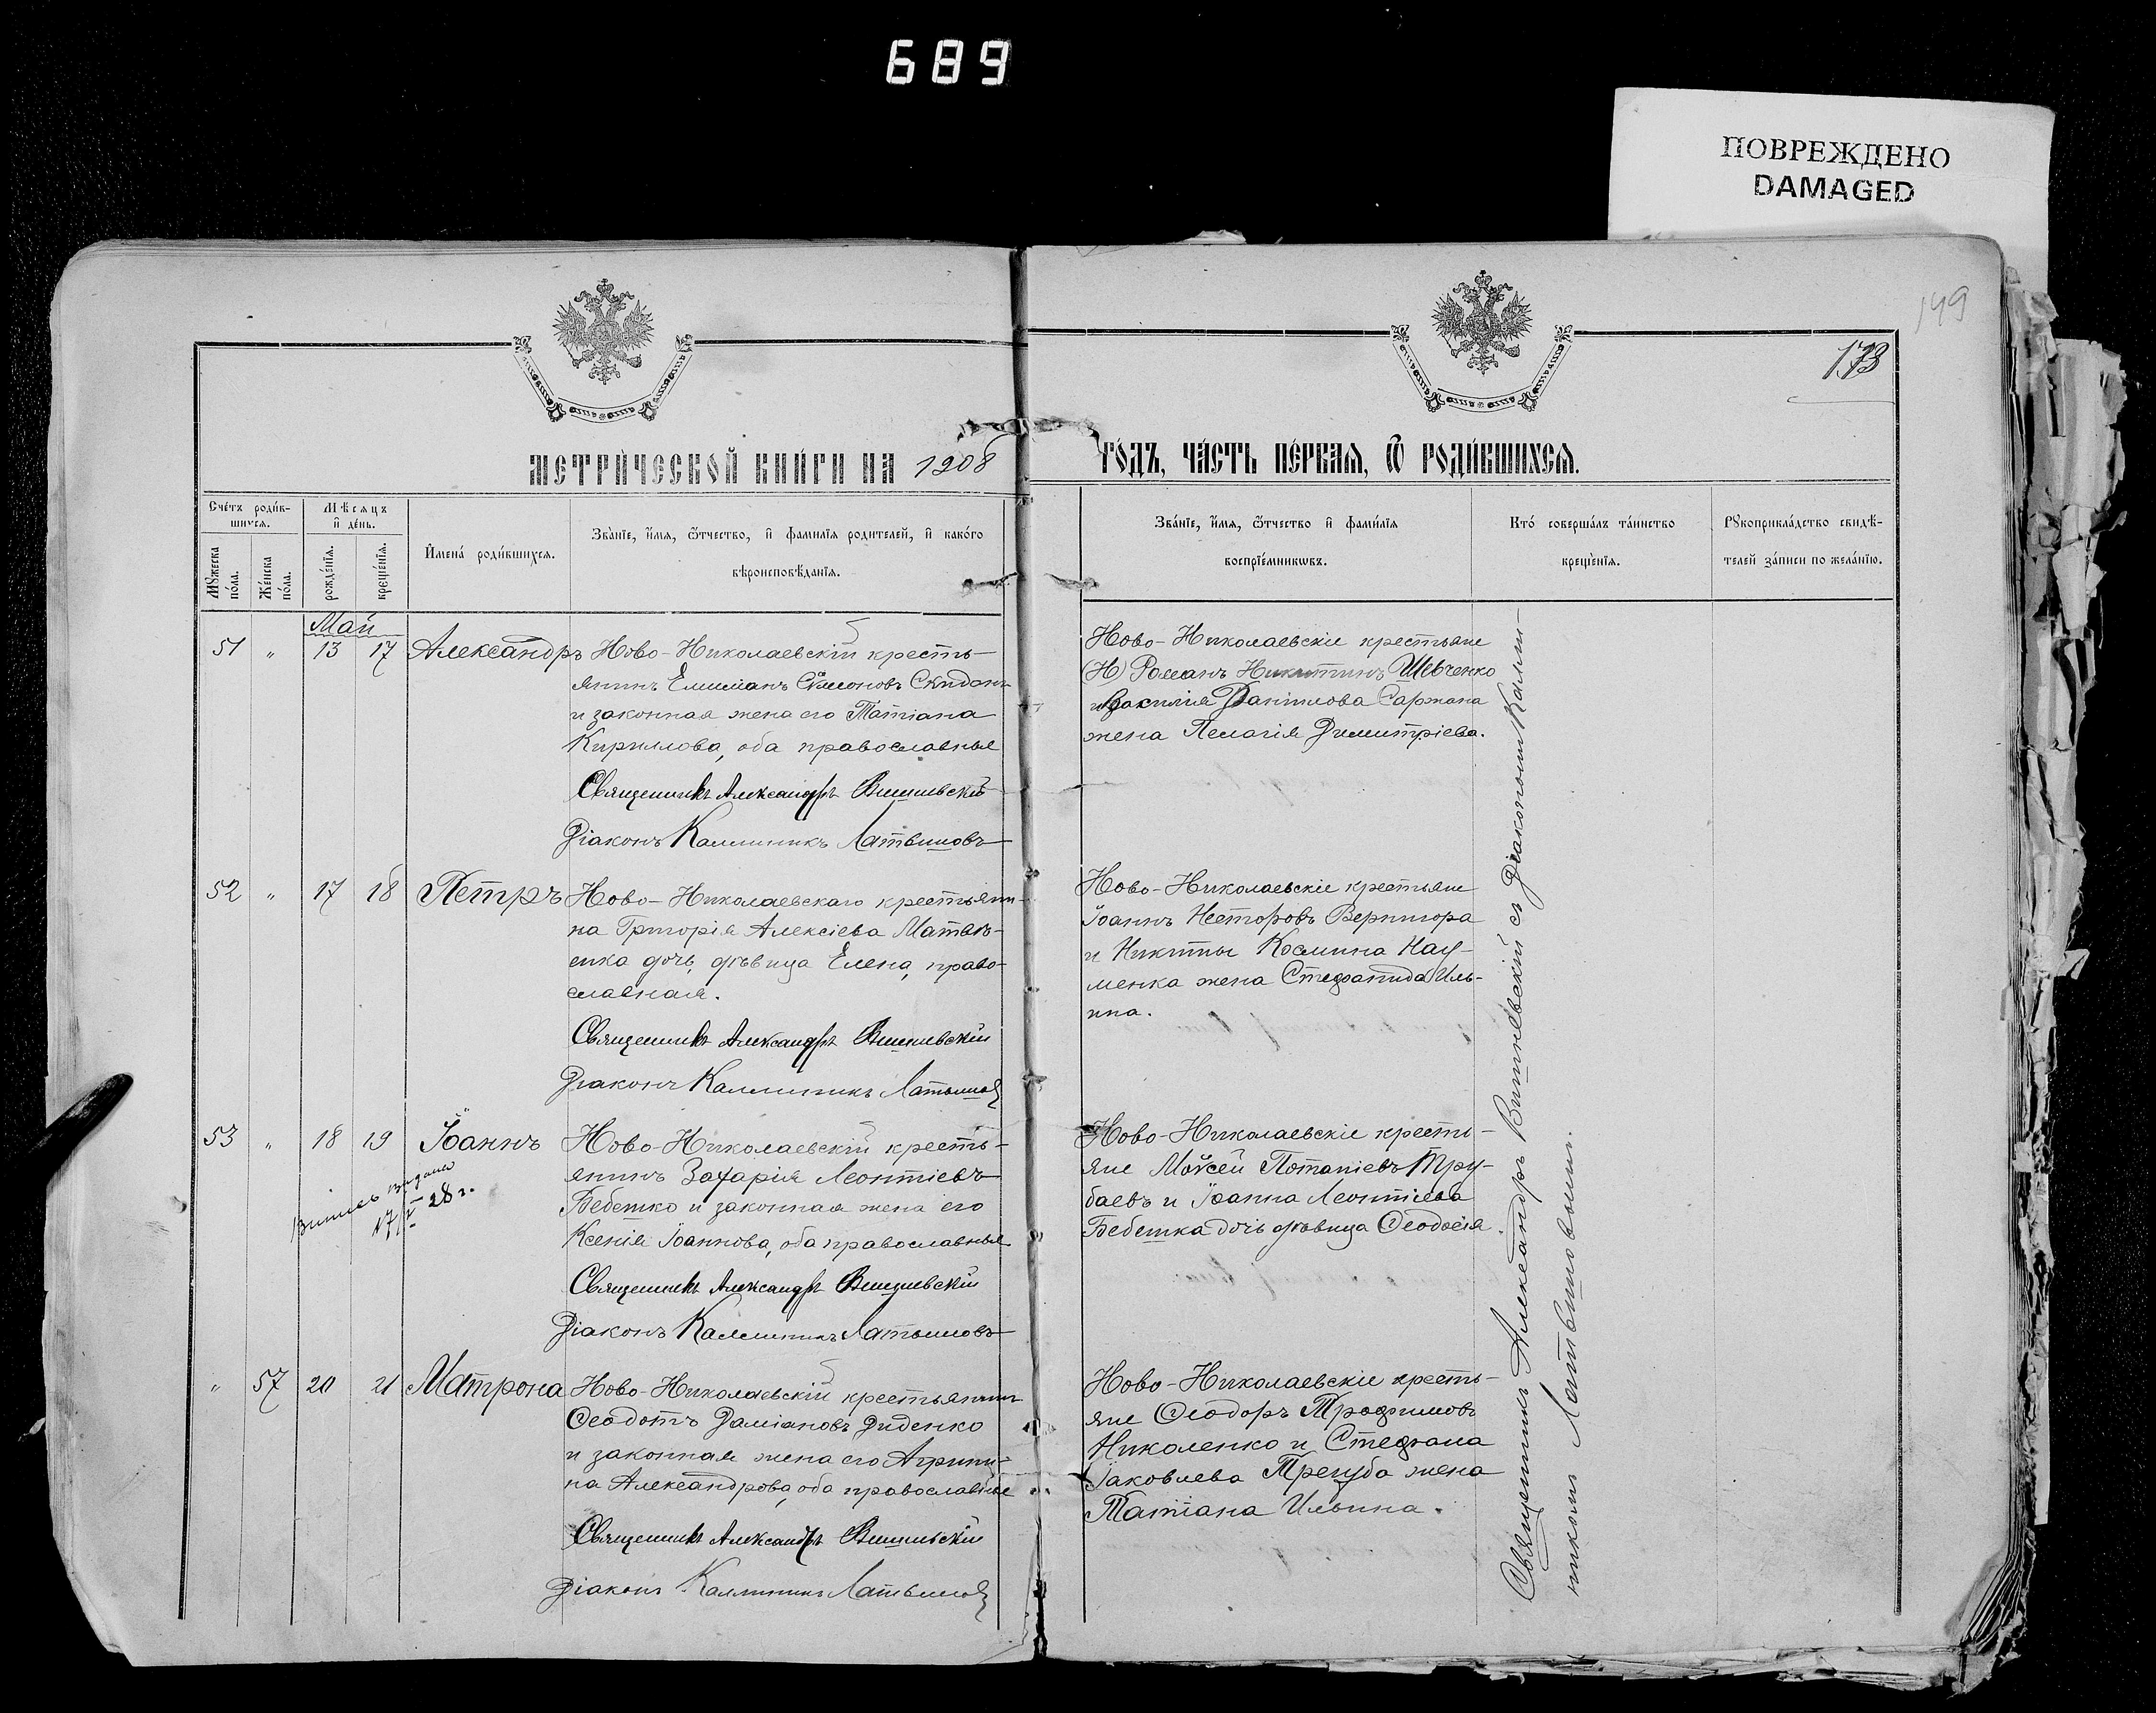 689
ПОВРЕЖДЕНО
DAMAGED
149
МЕТРИ́ЧЕСКОЙ КНИ́ГИ НА 1908
ГО́ДЪ, ЧА́СТЬ ПЕ́РВАЯ, Ѿ РОДИ́ВШИХСЯ.
Сче́тъ роди́в-
шихся.
Мѣсяцъ
и де́нь.
Мꙋ́жеска
по́ла.
Же́нска
по́ла.
рожде́нїя.
креще́нїя.
И҆мена̀ роди́вшихся.
Зва́нїе, и҆́мя, ѻ҆́тчество, и҆ фами́лїя роди́телей, и҆ како́го
вѣроисповѣ́данїя.
Зва́нїе, и҆́мя, ѻ҆́тчество и҆ фами́лїя
воспрїе́мникѡвъ.
Кто́ соверша́лъ та́инство
креще́нїя.
Рꙋкоприкла́дство свидѣ́-
телей за́писи по жела́нїю.
Май
51 " 13 17 Александръ
Ново-Николаевскій кресть-
янинъ Емиліанъ Сѵмеоновъ
и законная жена его Татіана
Кириллова, оба православные
Священникъ Александръ Вишневскій
Діаконъ Каллиникъ Латышовъ
Ново-Николаевскіе крестьяне
(Н) Романъ Никитинъ Шевченко
Данилова Саржана
жена Пелагія Димитріева.
52 " 17 18 Петръ
Ново-Николаевскаго крестьяни-
на Григорія Алексіева Матвѣ-
енка дочь, дѣвица Елена, право-
славная.
Священникъ Александръ Вишневскій
Діаконъ Каллиникъ Латышовъ
Ново-Николаевскіе крестьяне
Іоаннъ Несторовъ Вернигора
и Никиты Космина Нау-
менка жена Стефанида Иль-
ина.
53 " 18 19 Іоаннъ
выдана
28 г.
Ново-Николаевскій кресть-
янинъ Захарія Леонтіевъ
Бебешко и законная жена его
Ксенія Іоаннова, оба православные
Священникъ Александръ Вишневскій
Діаконъ Каллиникъ Латышовъ
Ново-Николаевскіе кресть-
яне Моѵсей Потапіевъ Тру-
баевъ и Іоанна Леонтіева
Бебешка дочь дѣвица Ѳеодосія.
" 57 20 21 Матрона
Ново-Николаевскій крестьянинъ
Ѳеодотъ Даміановъ Диденко
и законная жена его Агрипи-
на Александрова, оба православные
Священникъ Александръ Вишневскій
Діаконъ Каллиникъ Латышовъ
Ново-Николаевскіе кресть-
яне Ѳеодоръ Трофимовъ
Николенко и Стефана
Іаковлева Трегуба жена
Татіана Ильина.
Священникъ Александръ Вишневскій съ Діакономъ Калли-
никомъ Латышовымъ.